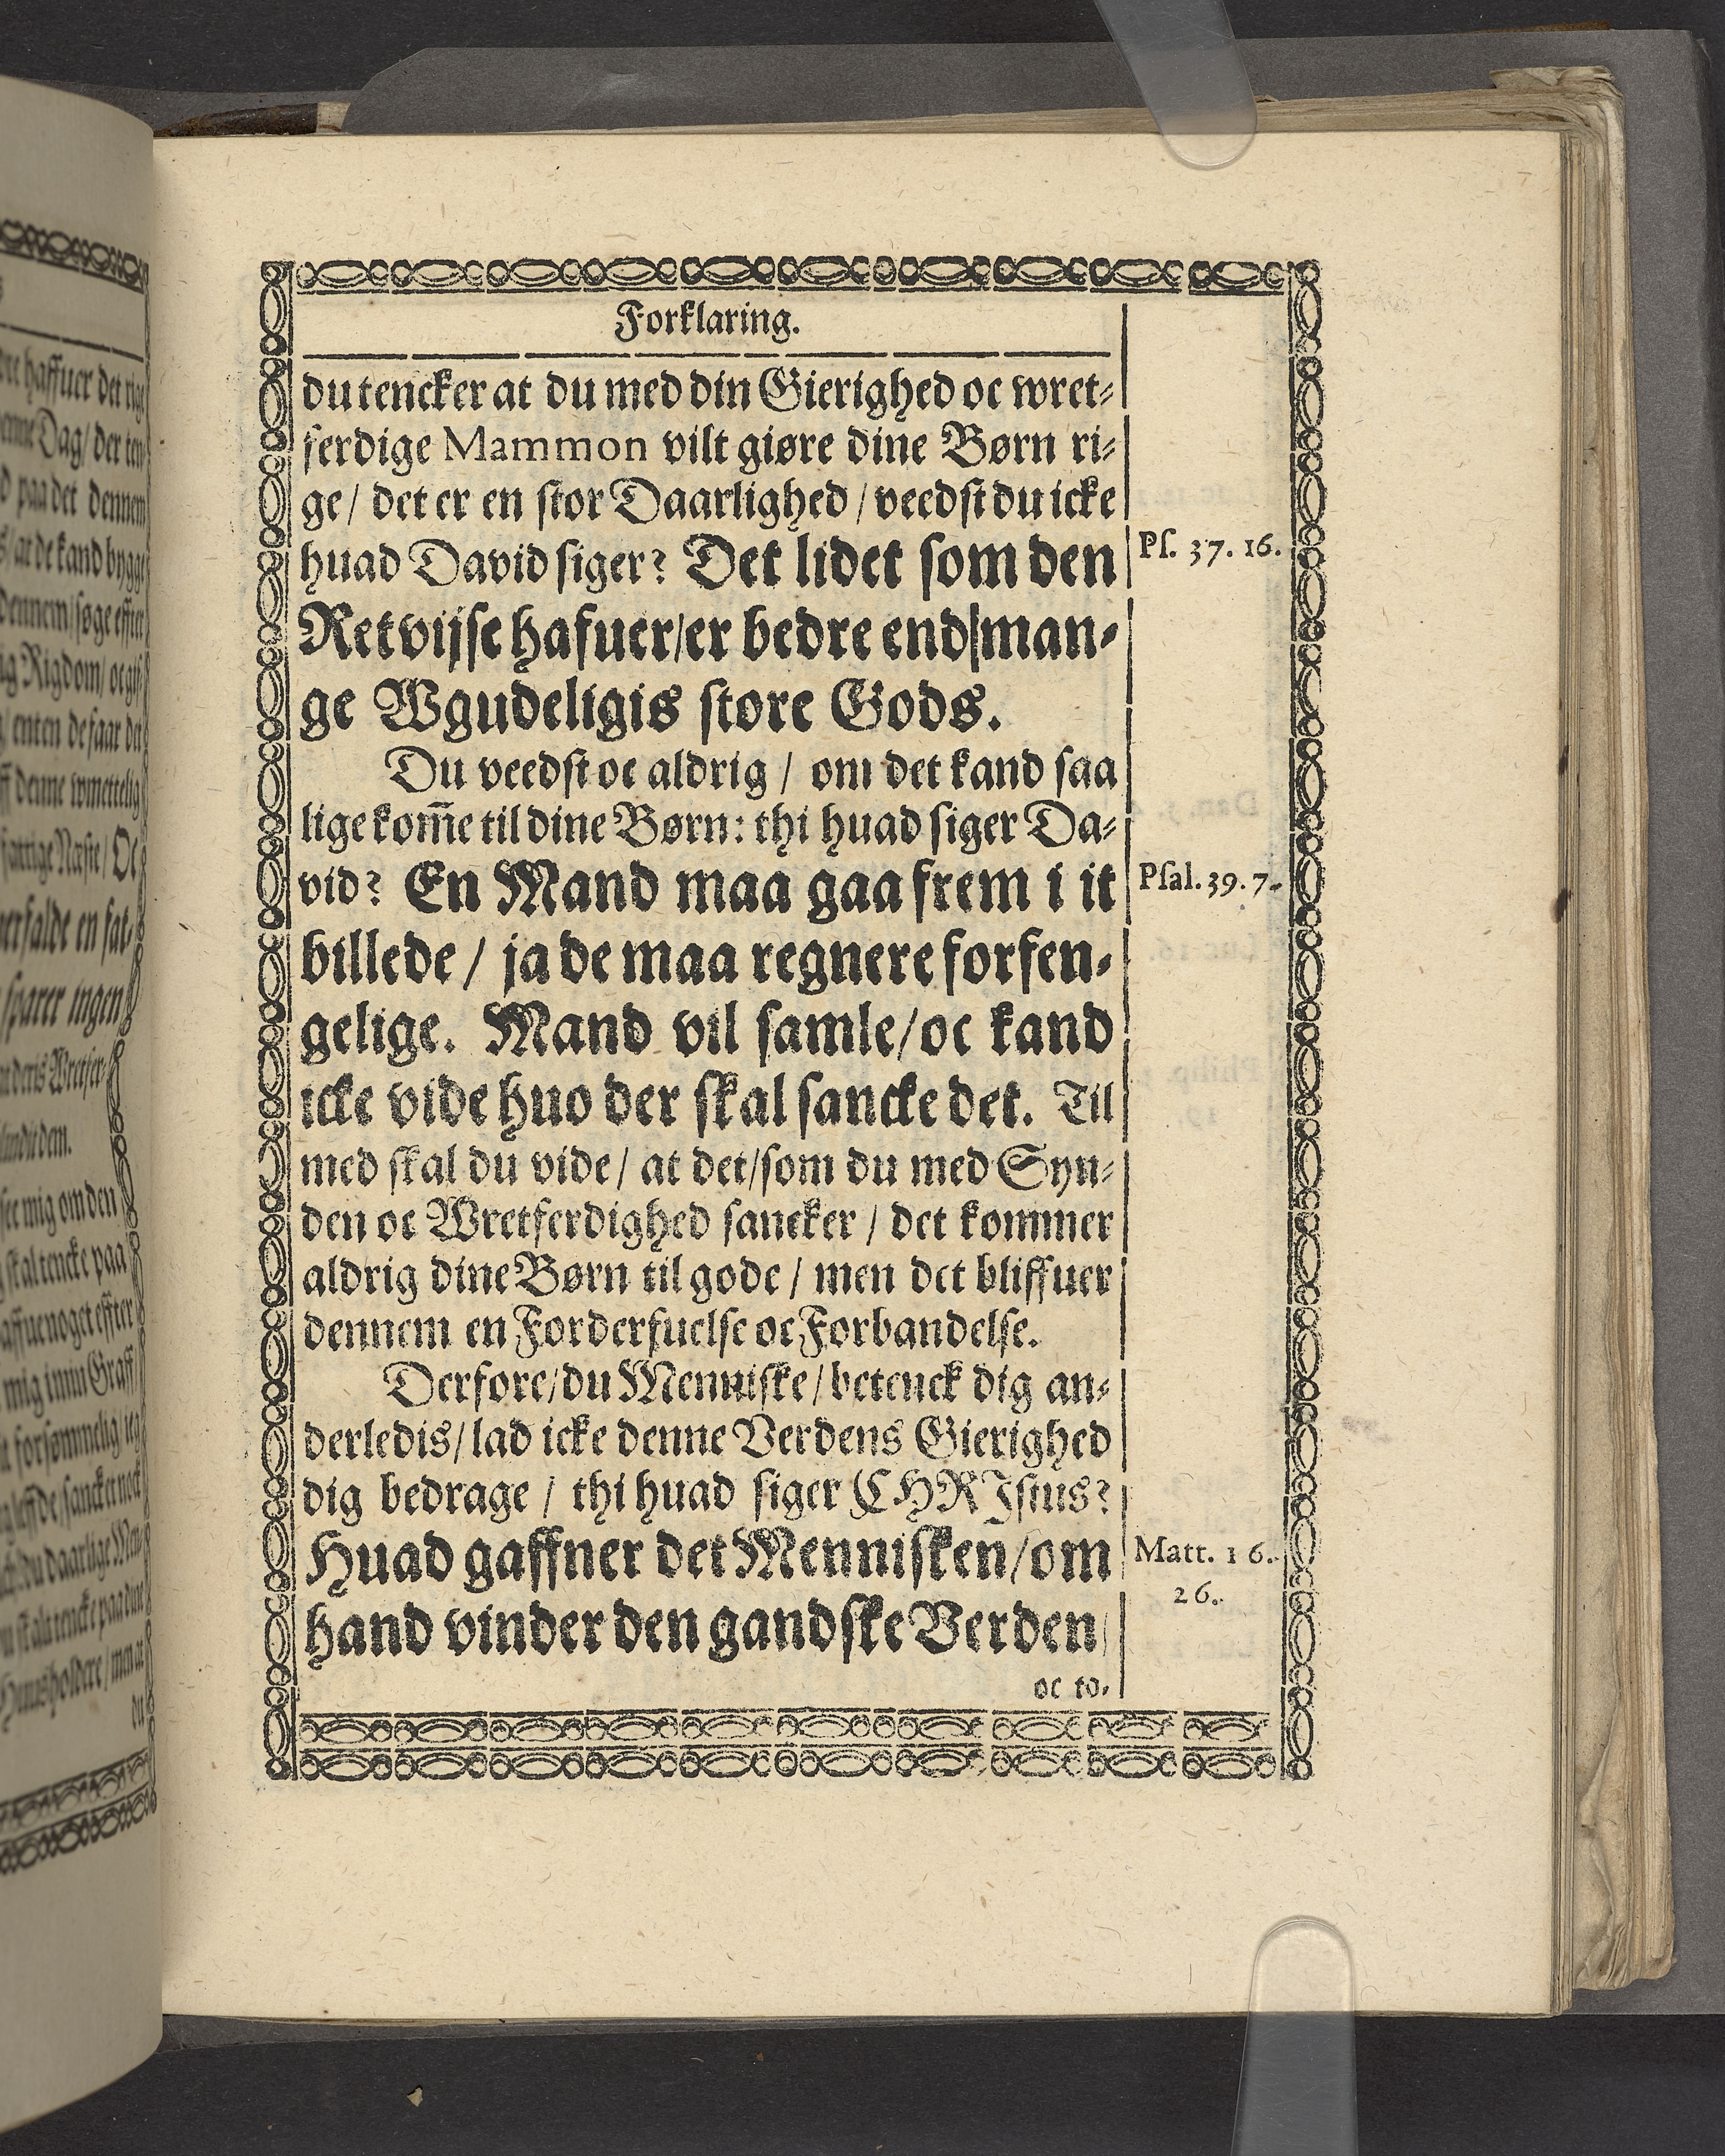 Forklaring.
du tencker at du med din Gierighed oc wret-
ferdige Mammon vilt giøre dine Børn ri-
ge / det er en stor Daarlighed / veedst du icke
huad David siger? Det lidet som den
Ps. 37. 16.
Retvijse hafuer/er bedre end|man-
ge Wgudeligis store Gods.
Du veedst oc aldrig / om det kand saa
lige kom̅e til dine Børn: thi huad siger Da-
vid? En Mand maa gaa frem i it
Psal. 39. 7.
billede / ja de maa regnere forfen-
gelige. Mand vil samle/oc kand
icke vide huo der skal sancke det. Til
med skal du vide / at det/som du med Syn-
den oc Wretferdighed sancker / det kommer
aldrig dine Børn til gode / men det bliffuer
dennem en Forderfuelse oc Forbandelse.
Derfore/du Menniske/betenck dig an-
derledis/lad icke denne Verdens Gierighed
dig bedrage / thi huad siger CHRIstus?
Huad gaffner det Mennisken/om
Matt. 16.
26.
hand vinder den gandske Verden/
oc to-